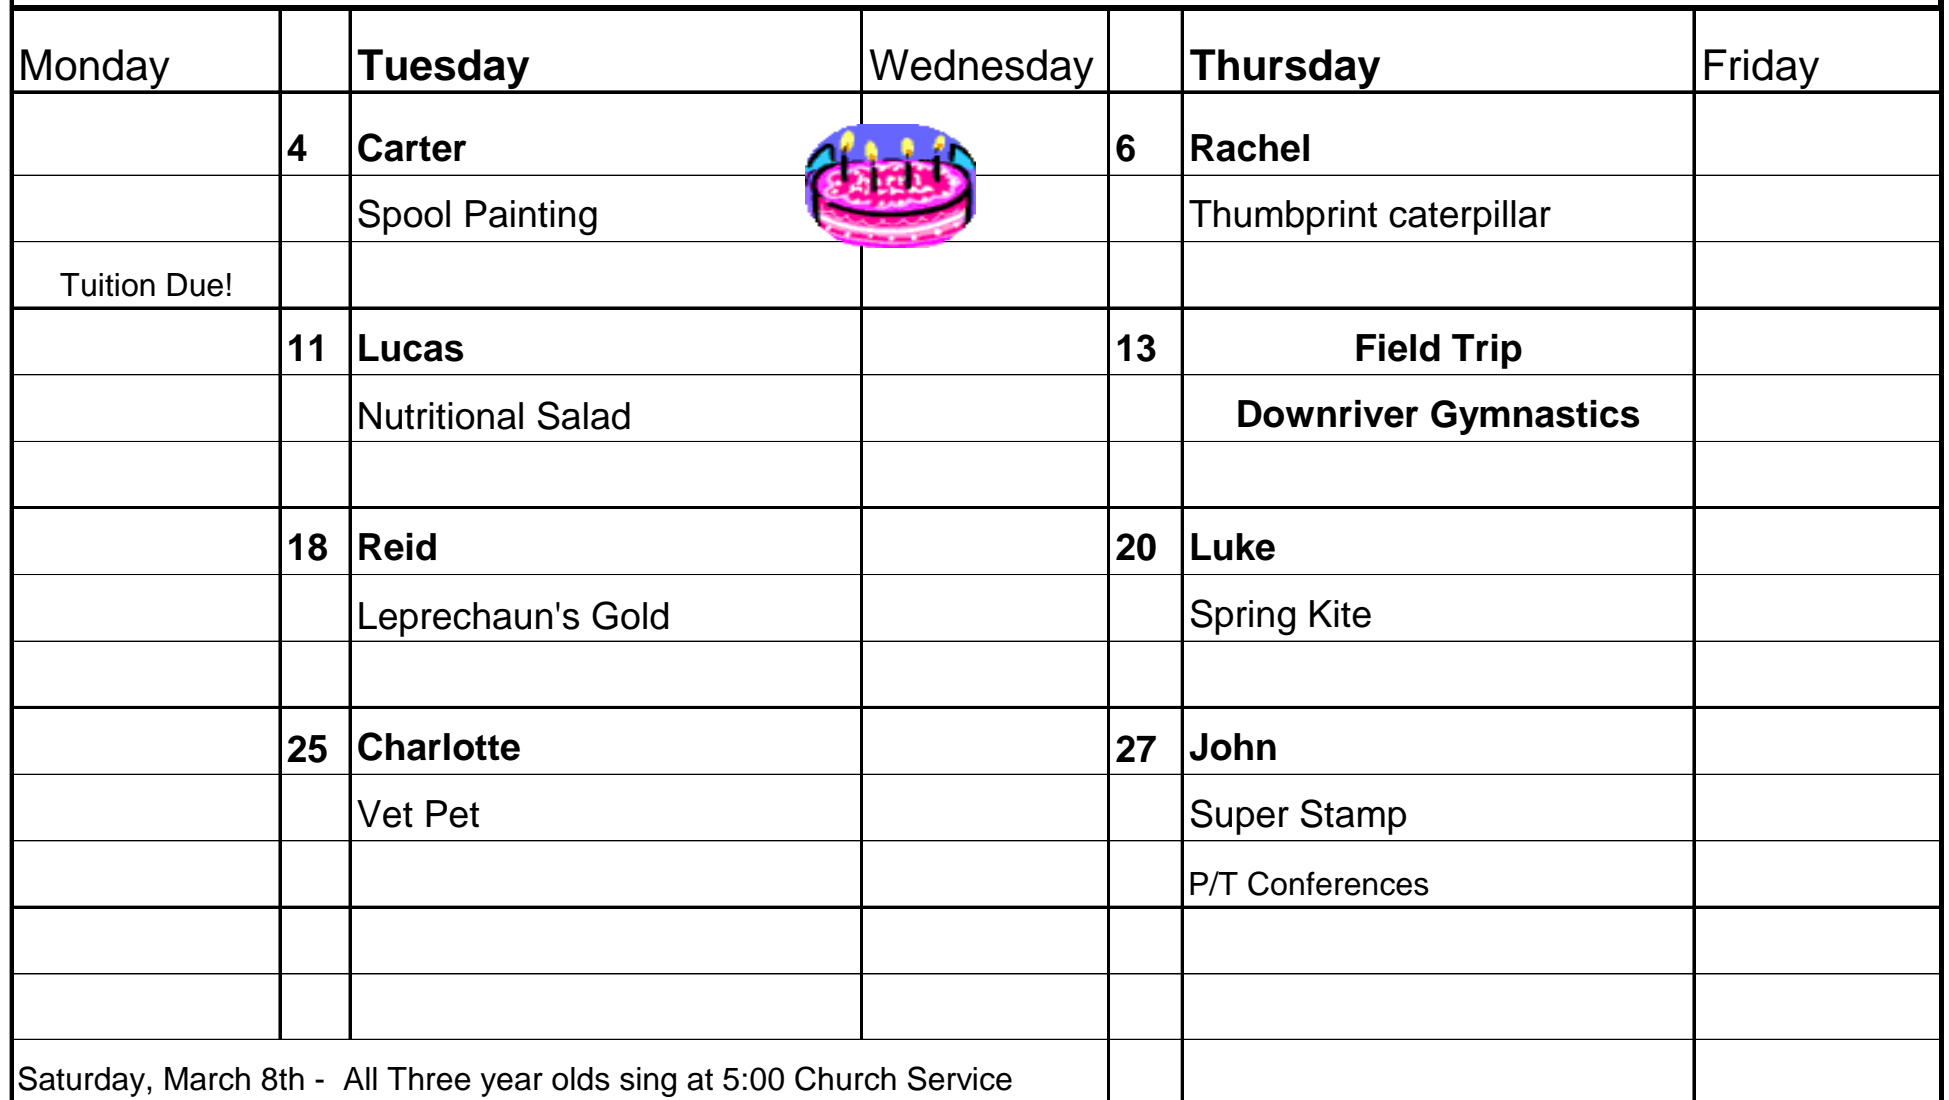 Monday Tuesday Wednesday Thursday Friday
4 Carter 6 Rachel
Spool Painting Thumbprint caterpillar
Tuition Due!
11 Lucas 13 Field Trip
Nutritional Salad Downriver Gymnastics
18 Reid 20 Luke
Leprechaun's Gold Spring Kite
25 Charlotte 27 John
Vet Pet Super Stamp
P/T Conferences
Saturday, March 8th - All Three year olds sing at 5:00 Church Service